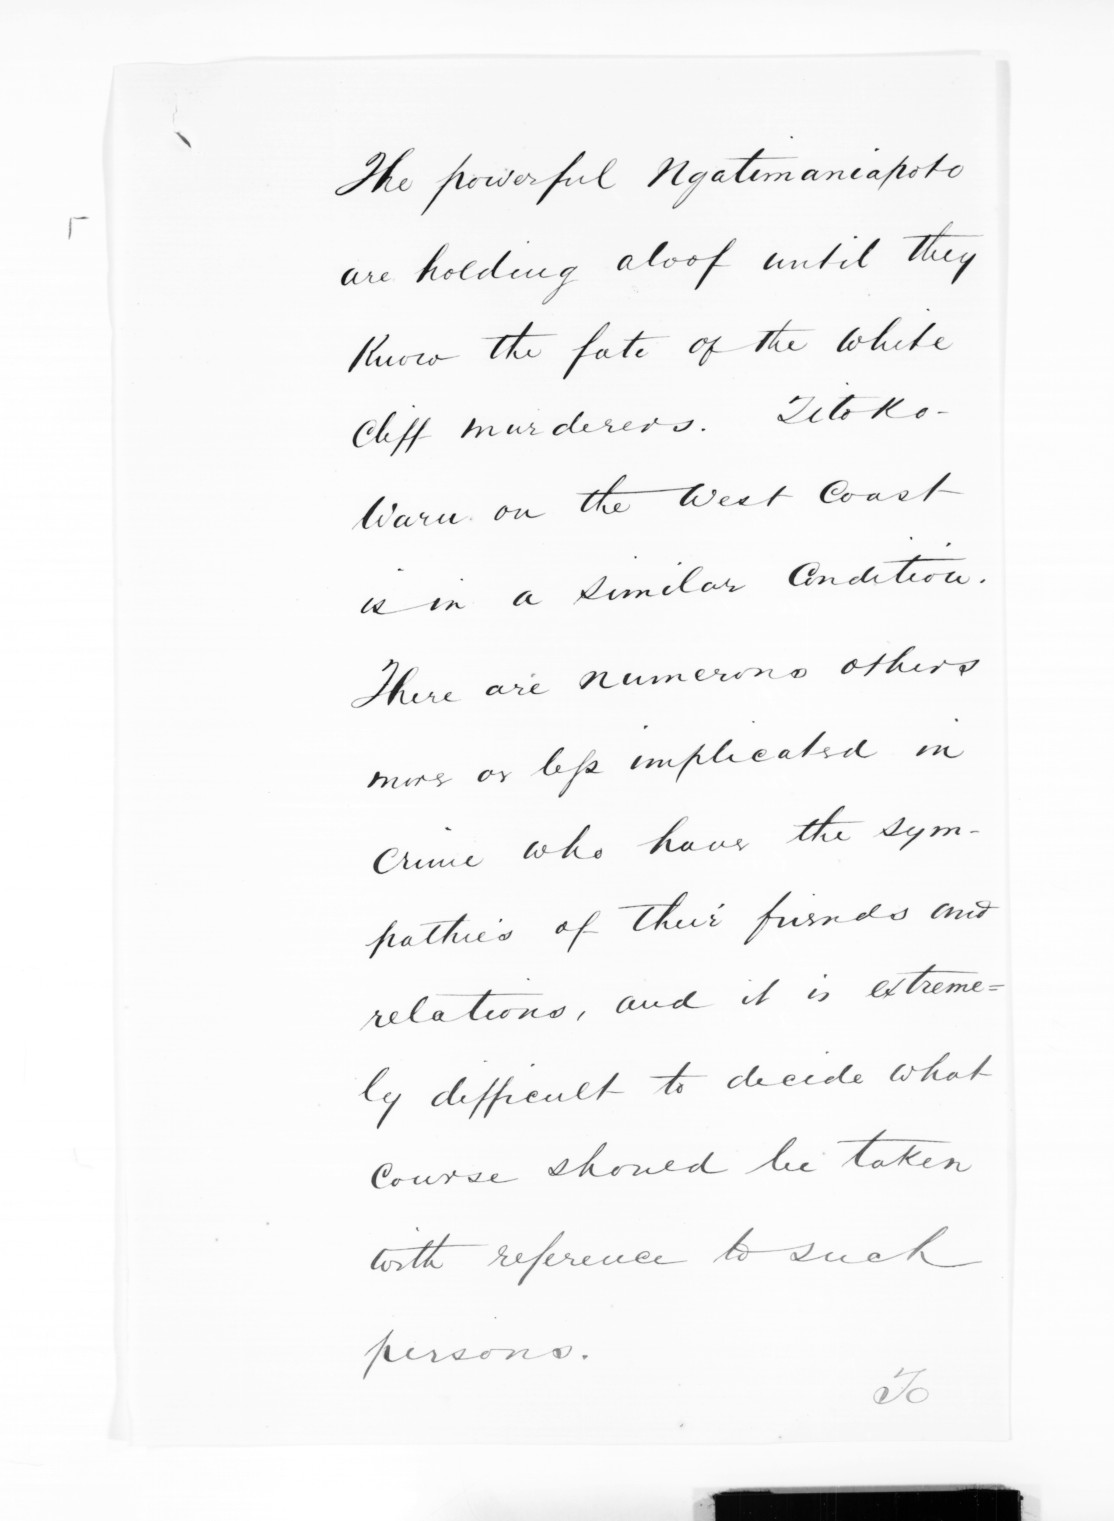 The powerful Ngatimaniapoto
are holding aloof until they
Know the fate of the White
Cliff murderers. Titoko-
Waru on the West Coast
is in a similar Condition.
There are numerous others
more or less implicated in
Crime who have the sym-
pathies of their friends and
relations, and it is extreme=
ly difficult to decide what
Course should be taken
with reference to such
persons.
To